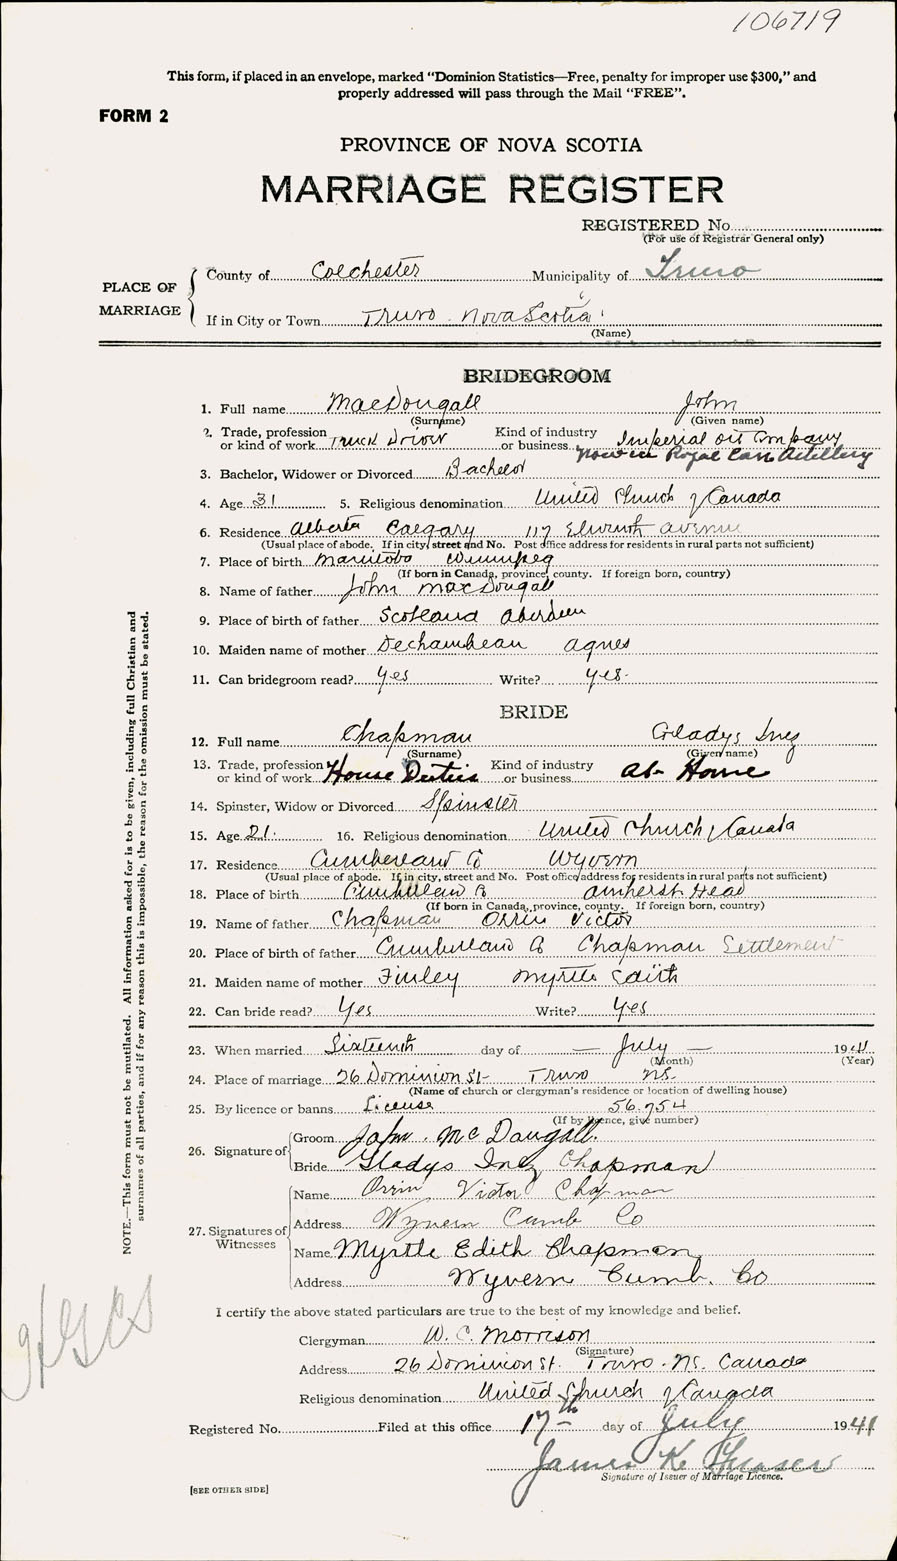 106719
This form, if placed in an envelope, marked "Dominion Statistics—Free, penalty for improper use $300," and
properly addressed will pass through the Mail "FREE".
FORM 2
PROVINCE OF NOVA SCOTIA
MARRIAGE REGISTER
REGISTERED No
(For use of Registrar General only)
PLACE OF MARRIAGE
County of Colchester Municipality of Truro
If in City or Town Truro Nova Scotia
(Name)
BRIDEGROOM
1. Full name MacDougall John
(Surname) (Given name)
2. Trade, profession or kind of work Truck Driver Kind of industry or business Imperial Oil Company
Now in Royal Can Artillery
3. Bachelor, Widower or Divorced Bachelor
4. Age 31 5. Religious denomination United Church of Canada
6. Residence Alberta Calgary 117 avenue
(Usual place of abode. If in city, street and No. Post office address for residents in rural parts not sufficient)
7. Place of birth Manitoba Winnipeg
(If born in Canada, province, county. If foreign born, country)
8. Name of father John MacDougall
9. Place of birth of father Scotland Aberdeen
10. Maiden name of mother Dechambeau Agnes
11. Can bridegroom read? Yes Write? Yes.
BRIDE
12. Full name Chapman Gladys Inez
(Surname) (Given name)
13. Trade, profession or kind of work House Duties Kind of industry or business At Home
14. Spinster, Widow or Divorced Spinster
15. Age 21. 16. Religious denomination United Church of Canada
17. Residence Cumberland Co Wyvern
(Usual place of abode. If in city, street and No. Post office address for residents in rural parts not sufficient)
18. Place of birth Cumberland Co Amherst Head
(If born in Canada, province, county. If foreign born, country)
19. Name of father Chapman Orrin Victor
20. Place of birth of father Cumberland Co Chapman Settlement
21. Maiden name of mother Finley Myrtle Edith
22. Can bride read? Yes Write? Yes
23. When married Sixteenth day of — July — 1941
(Month) (Year)
24. Place of marriage 26 Dominion St- Truro NS.
(Name of church or clergyman's residence or location of dwelling house)
25. By licence or banns License 56.754
(If by licence, give number)
26. Signature of
Groom John McDougall.
Bride Gladys Inez Chapman
27. Signatures of Witnesses
Name Orrin Victor Chapman
Address Wyvern Cumb Co
Name Myrtle Edith Chapman
Address Wyvern Cumb. Co
I certify the above stated particulars are true to the best of my knowledge and belief.
Clergyman W. C. Morrison
(Signature)
Address 26 Dominion St. Truro. NS. Canada
Religious denomination United Church of Canada
Registered No. Filed at this office 17th day of July 1941
James K.
Signature of Issuer of Marriage Licence.
[SEE OTHER SIDE]
NOTE.—This form must not be mutilated. All information asked for is to be given, including full Christian and
surnames of all parties, and if for any reason this is impossible, the reason for the omission must be stated.